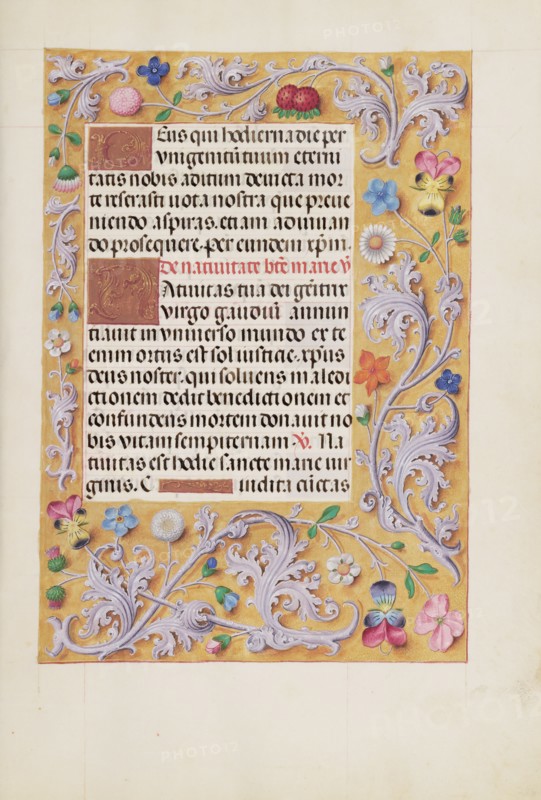 Deus qui hodierna die per
vnigenitū tuum eterni
tatis nobis aditum deuicta mor
te reserasti uota nostra que preue
niendo aspiras. etiam adiuuan
do prosequere. per eundem xp̄m.
De natiuitate btē marie v̄
Natiuitas tua dei gētrix
virgo gaudiū annun
tiauit in vniuerso mundo ex te
enim ortus est sol iusticie. xp̄us
deus noster. qui soluens maledi
ctionem dedit benedictionem et
confundens mortem donauit no
bis vitam sempiternam. V̄. Na
tiuitas est hodie sancte marie uir
ginis. C uius uita īclita cūctas